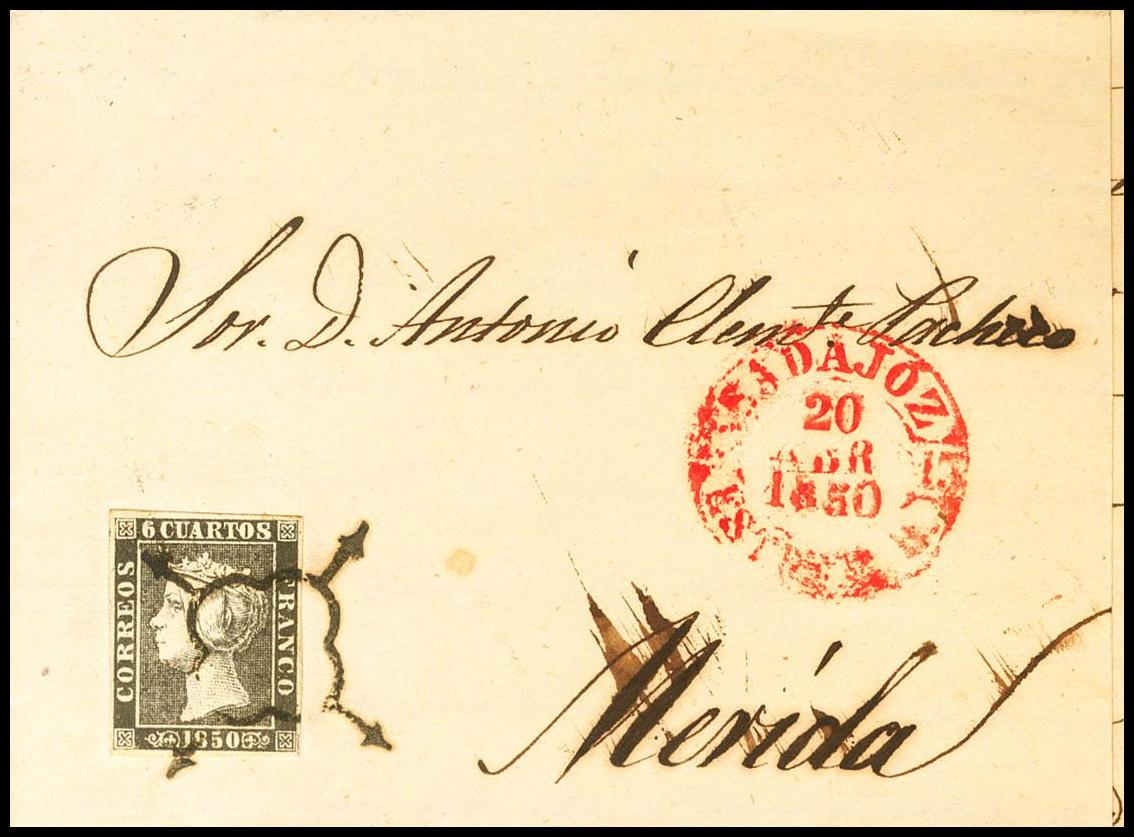 Sor. D. Antonio Clemte. Pacheco
BADAJÓZ
20
ABR
1850
6 CUARTOS
CORREOS
FRANCO
1850
Merida